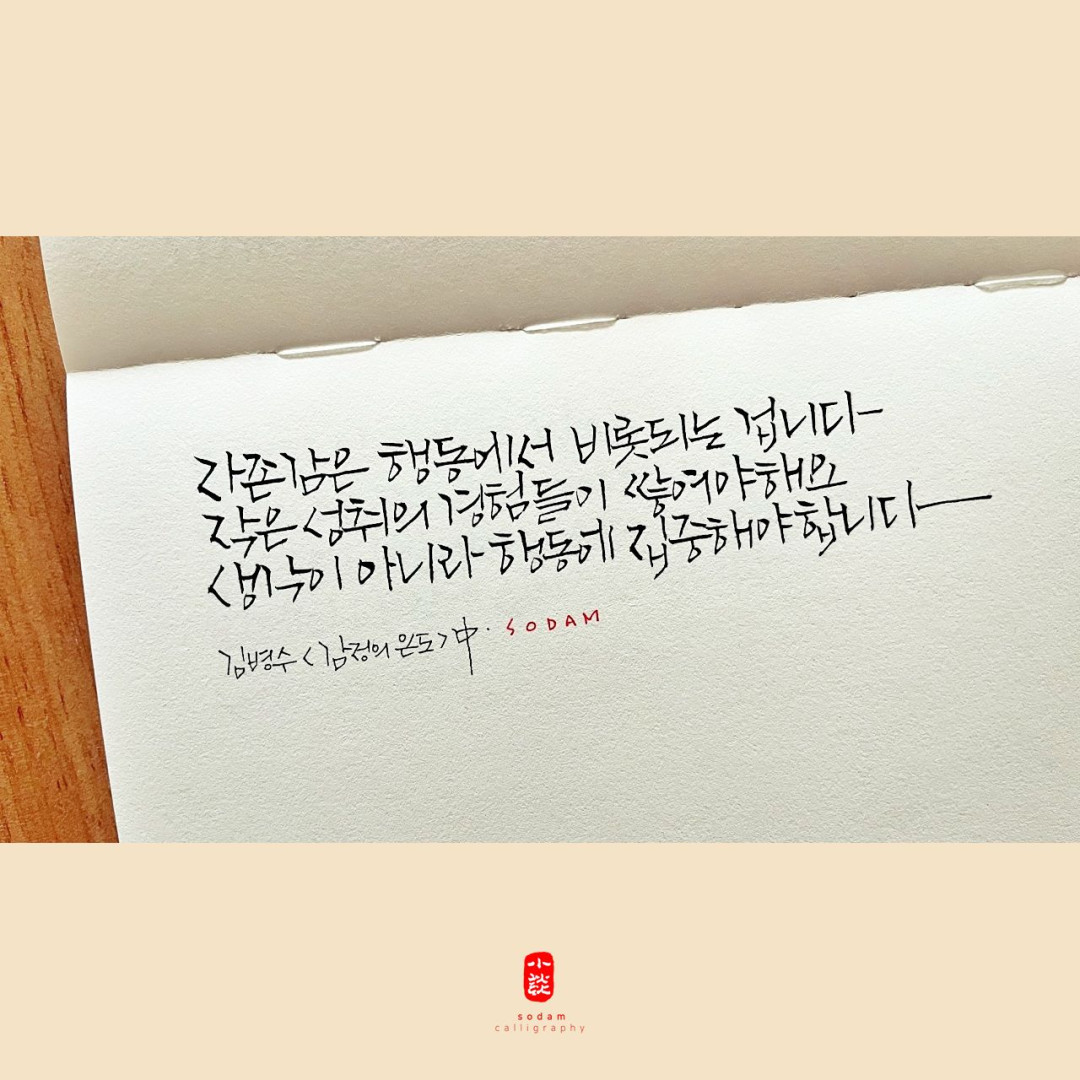 자존감은 행동에서 비롯되는 겁니다
작은 성취의 경험들이 쌓여야해요
생각이 아니라 행동에 집중해야합니다
김병수 <감정의 온도> 中. SODAM
小談
sodam
calligraphy